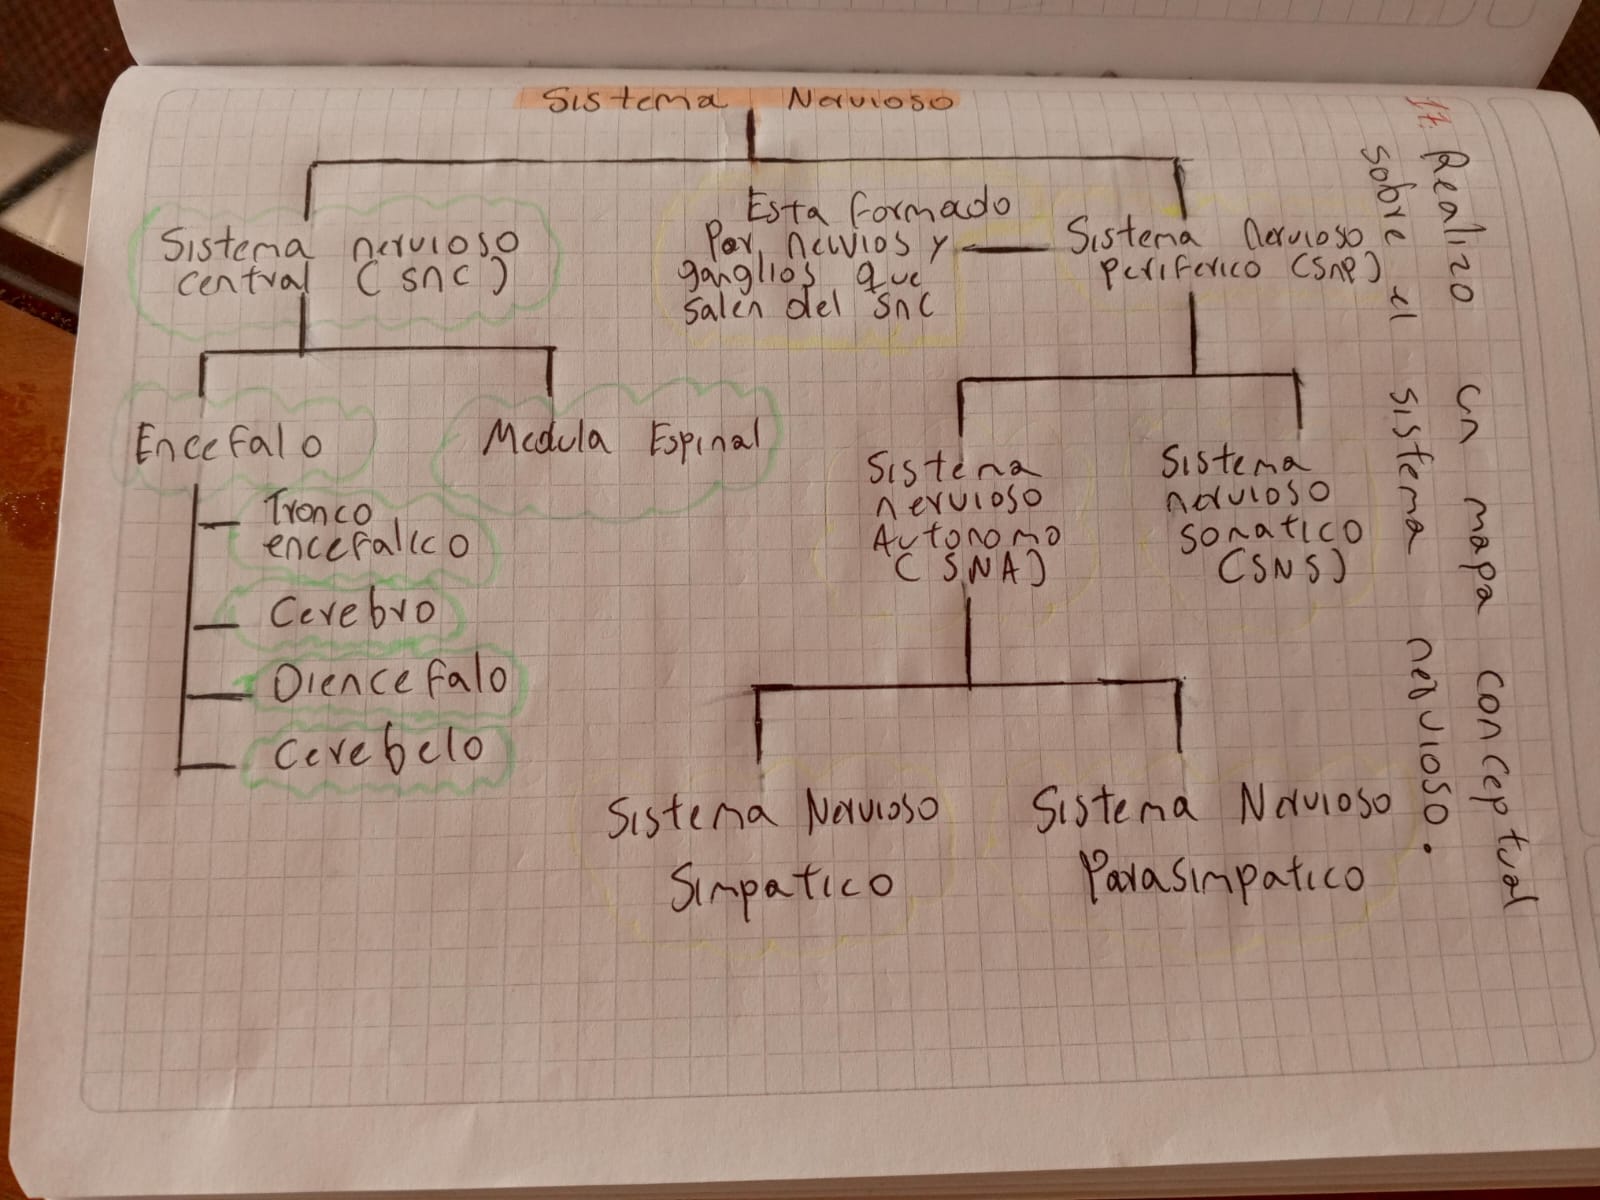 Sistema Nervioso
17. Realizo un mapa conceptual
sobre el sistema nervioso.
Sistema nervioso
central (snc)
Esta formado
Por nervios y
ganglios que
salen del snc
Sistema nervioso
periferico (snp)
Encefalo
Medula Espinal
Tronco
encefalico
Cerebro
Diencefalo
Cerebelo
Sistema
nervioso
Autonomo
(SNA)
Sistema
nervioso
somatico
(SNS)
Sistema Nervioso
Simpatico
Sistema Nervioso
Parasimpatico